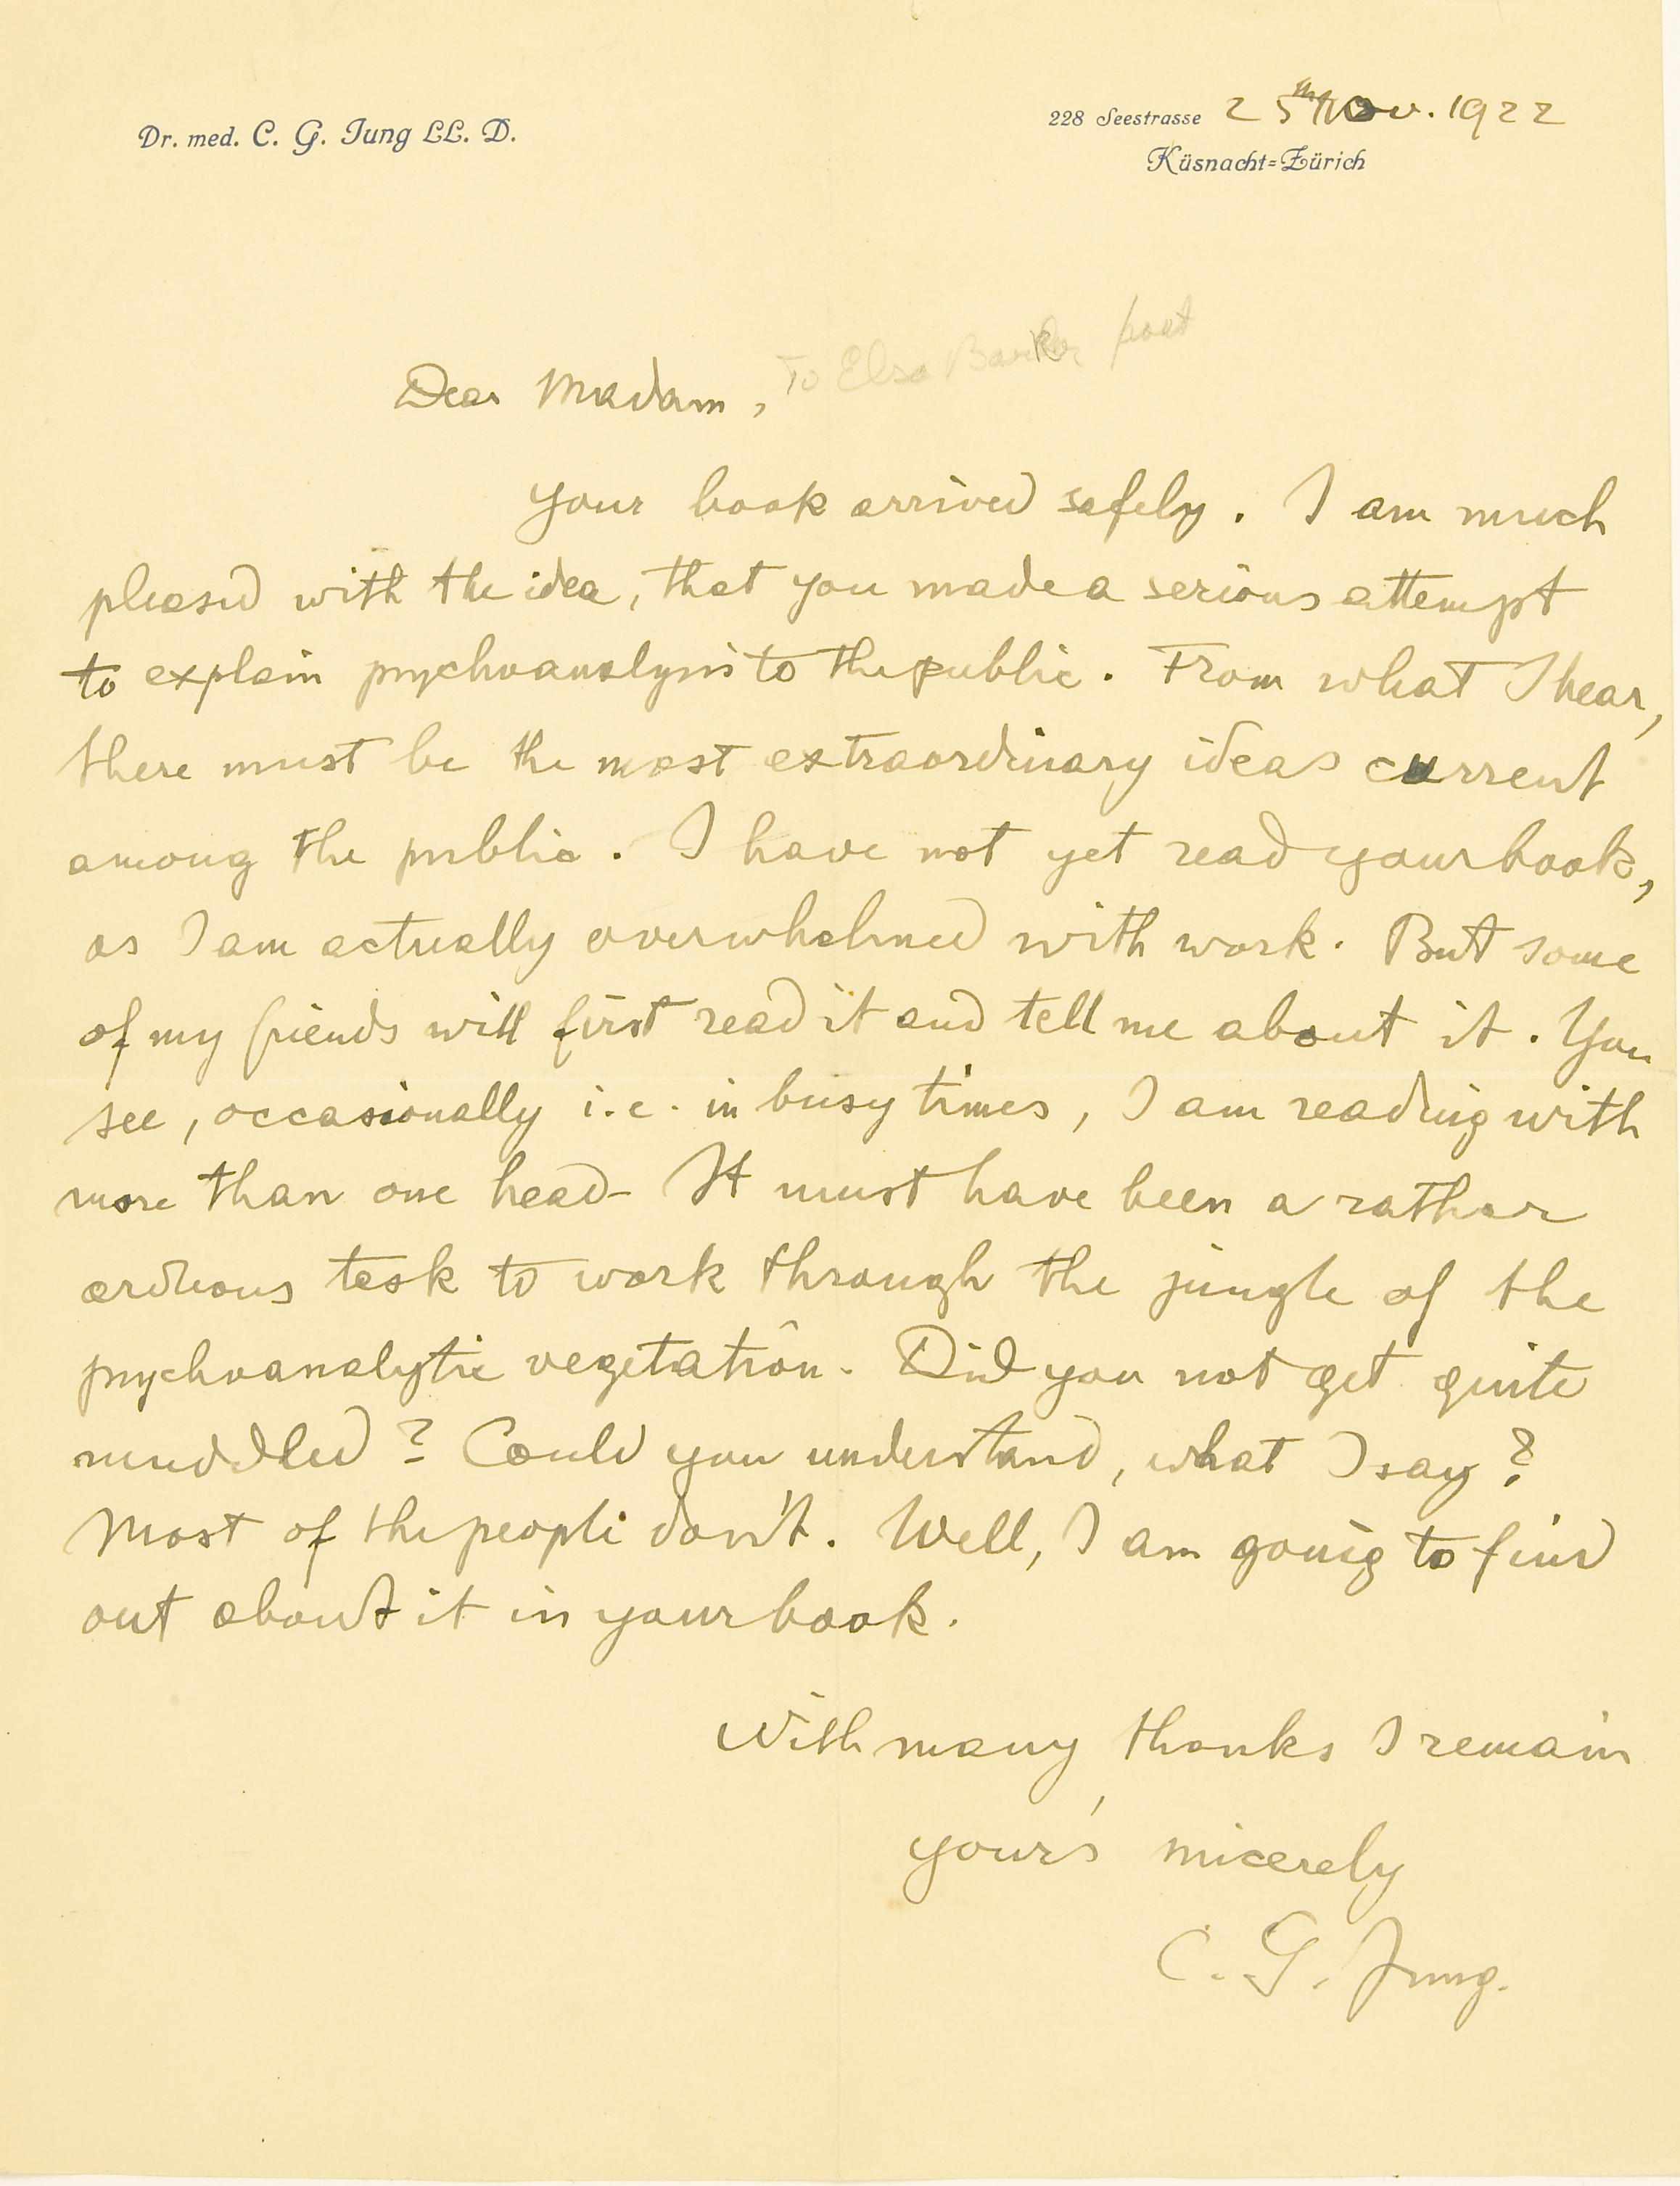 Dr. med. C. G. Jung LL. D.
228 Seestrasse 25th Nov. 1922
Küsnacht=Zürich
To Elsa Barker poet
Dear Madam,
your book arrived safely. I am much
pleased with the idea, that you made a serious attempt
to explain psychoanalysis to the public. From what I hear,
there must be the most extraordinary ideas current
among the public. I have not yet read your book,
as I am actually overwhelmed with work. But some
of my friends will first read it and tell me about it. You
see, occasionally i.e. in busy times, I am reading with
more than one head - It must have been a rather
arduous task to work through the jungle of the
psychoanalytic vegetation. Did you not get quite
muddled? Could you understand, what I say?
Most of the people don't. Well, I am going to find
out about it in your book.
With many thanks I remain
yours sincerely
C. G. Jung.